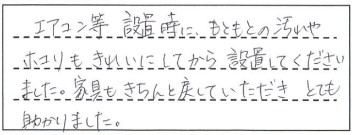 エアコン等 設置時に、もともとの汚れや
ホコリもきれいにしてから設置してください
ました。家具もきちんと戻していただき とても
助かりました。